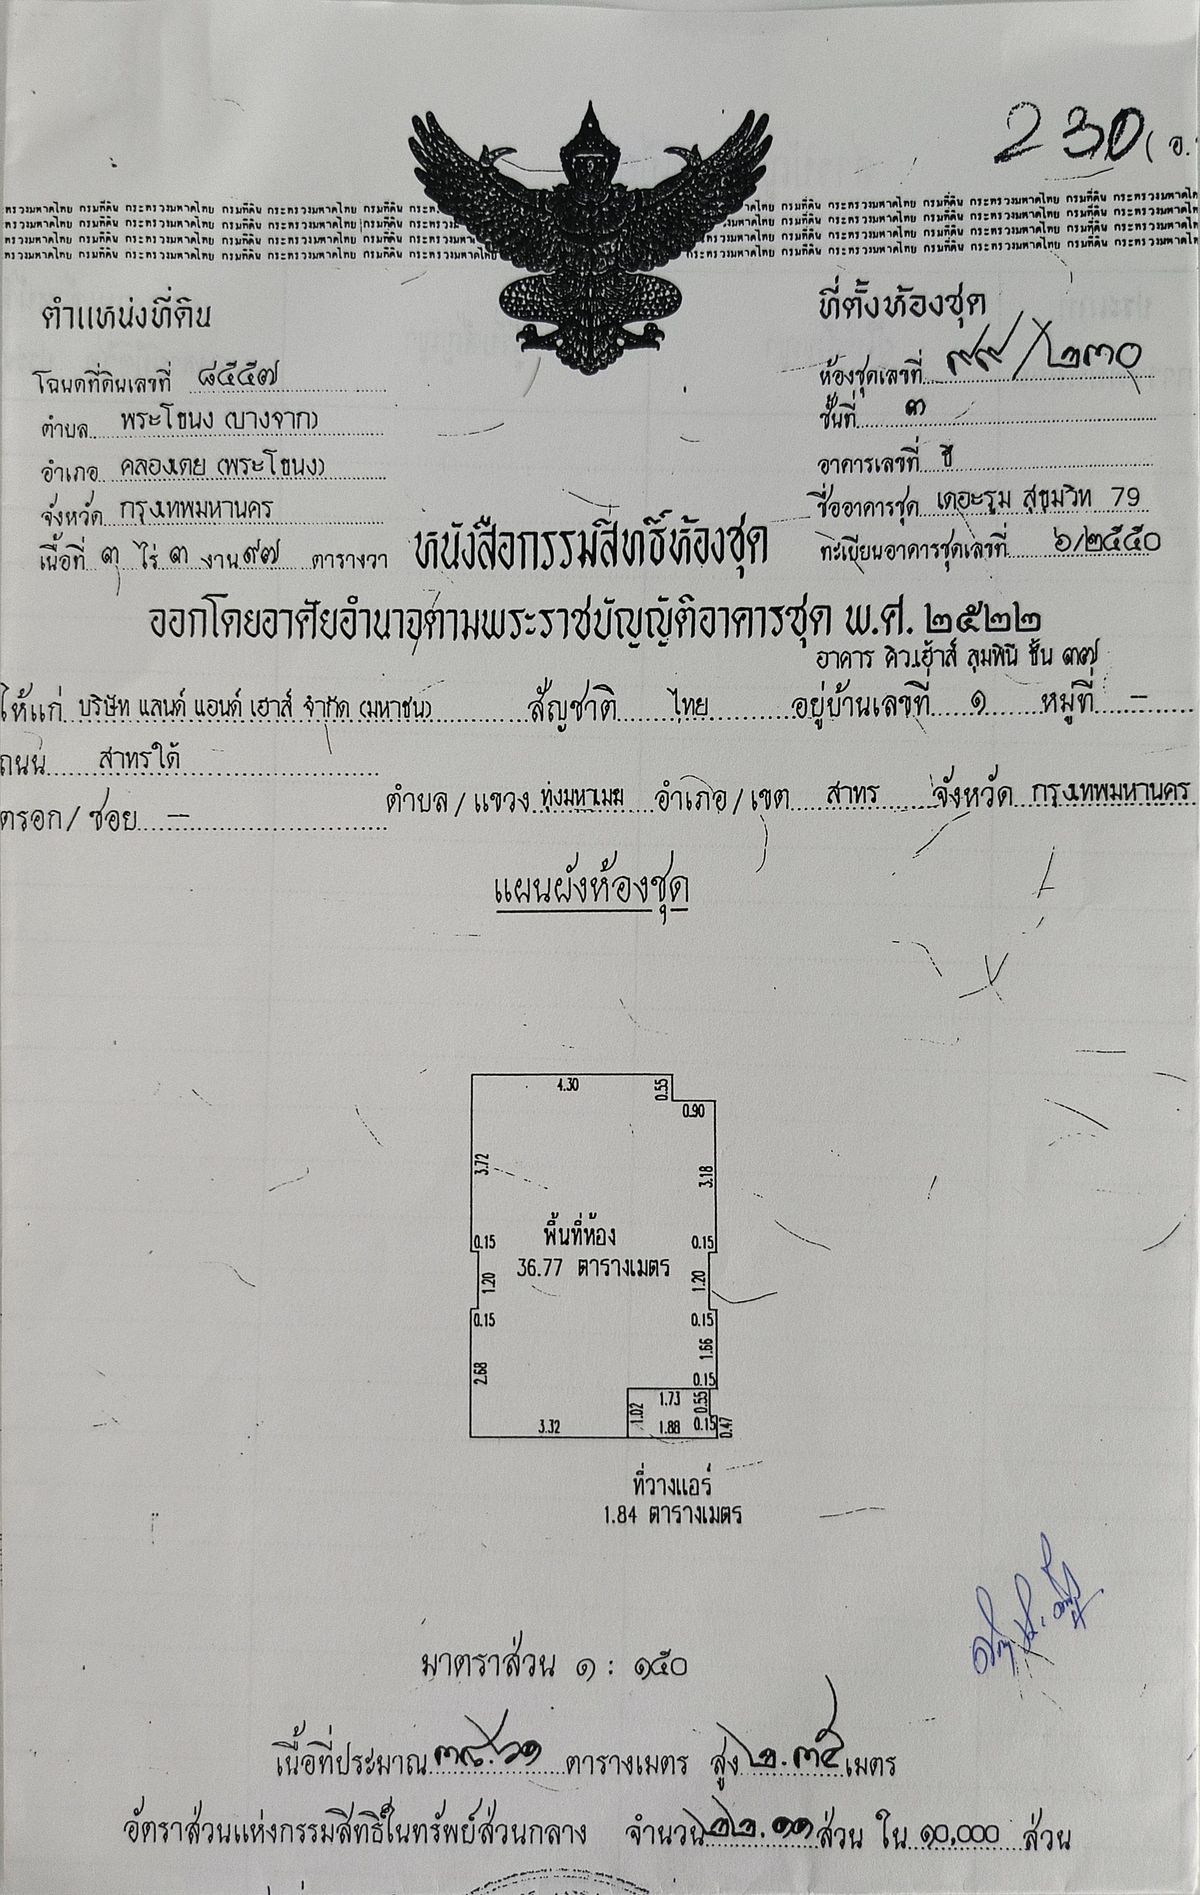 230 (อ.
กระทรวงมหาดไทย กรมที่ดิน กระทรวงมหาดไทย กรมที่ดิน กระทรวงมหาดไทย กรมที่ดิน
ตำแหน่งที่ดิน
โฉนดที่ดินเลขที่ ๘๕๕๗
ตำบล พระโขนง (บางจาก)
อำเภอ คลองเตย (พระโขนง)
จังหวัด กรุงเทพมหานคร
เนื้อที่ ๓ ไร่ ๓ งาน ๙๗ ตารางวา
ที่ตั้งห้องชุด
ห้องชุดเลขที่ ๙๙/๒๓๐
ชั้นที่ ๓
อาคารเลขที่ ซี
ชื่ออาคารชุด เดอะรูม สุขุมวิท 79
ทะเบียนอาคารชุดเลขที่ ๖/๒๕๕๐
หนังสือกรรมสิทธิ์ห้องชุด
ออกโดยอาศัยอำนาจตามพระราชบัญญัติอาคารชุด พ.ศ. ๒๕๒๒
อาคาร คิวเฮ้าส์ ลุมพินี ชั้น ๓๗
ให้แก่ บริษัท แลนด์ แอนด์ เฮาส์ จำกัด (มหาชน) สัญชาติ ไทย อยู่บ้านเลขที่ ๑ หมู่ที่ –
ถนน สาทรใต้
ตรอก/ซอย – ตำบล/แขวง ทุ่งมหาเมฆ อำเภอ/เขต สาทร จังหวัด กรุงเทพมหานคร
แผนผังห้องชุด
4.30
0.55
0.90
3.72
3.18
0.15
0.15
พื้นที่ห้อง
36.77 ตารางเมตร
1.20
1.20
0.15
0.15
1.66
2.68
0.15
1.73
0.55
1.02
3.32
1.88
0.15
0.47
ที่วางแอร์
1.84 ตารางเมตร
มาตราส่วน ๑ : ๑๕๐
เนื้อที่ประมาณ ๓๘.๖๑ ตารางเมตร สูง ๒.๓๕ เมตร
อัตราส่วนแห่งกรรมสิทธิ์ในทรัพย์ส่วนกลาง จำนวน ๒๒.๑๑ ส่วน ใน ๑๐,๐๐๐ ส่วน